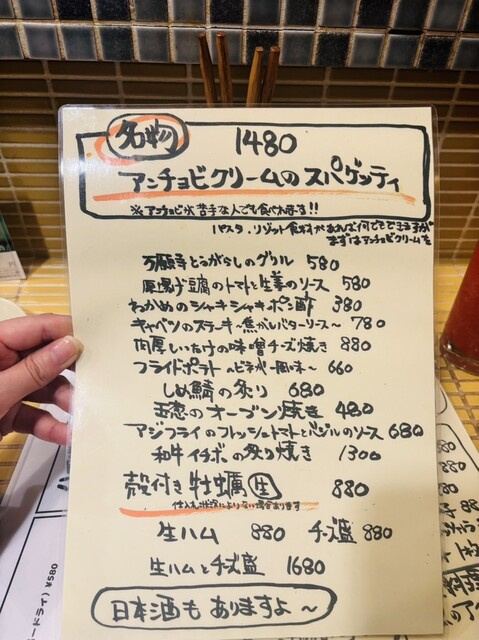 名物
1480
アンチョビクリームのスパゲッティ
※アンチョビが苦手な人でも食べれます!!
パスタ、リゾット食材があれば何でもできますが
まずはアンチョビクリームを
万願寺とうがらしのグリル 580
厚揚げ豆腐のトマトと生姜のソース 580
わかめのシャキシャキポン酢 380
キャベツのステーキ~焦がしバターソース~ 780
肉厚しいたけの味噌チーズ焼き 880
フライドポテト ~ビネガー風味~ 660
しめ鯖の炙り 680
玉葱のオーブン焼き 480
アジフライのフレッシュトマトとバジルのソース 680
和牛イチボの炙り焼き 1300
殻付き牡蠣 生 880
仕入れ状況によりない場合あります
生ハム 880 チーズ盛 880
生ハムとチーズ盛 1680
日本酒もありますよ~
ードライ) ¥580